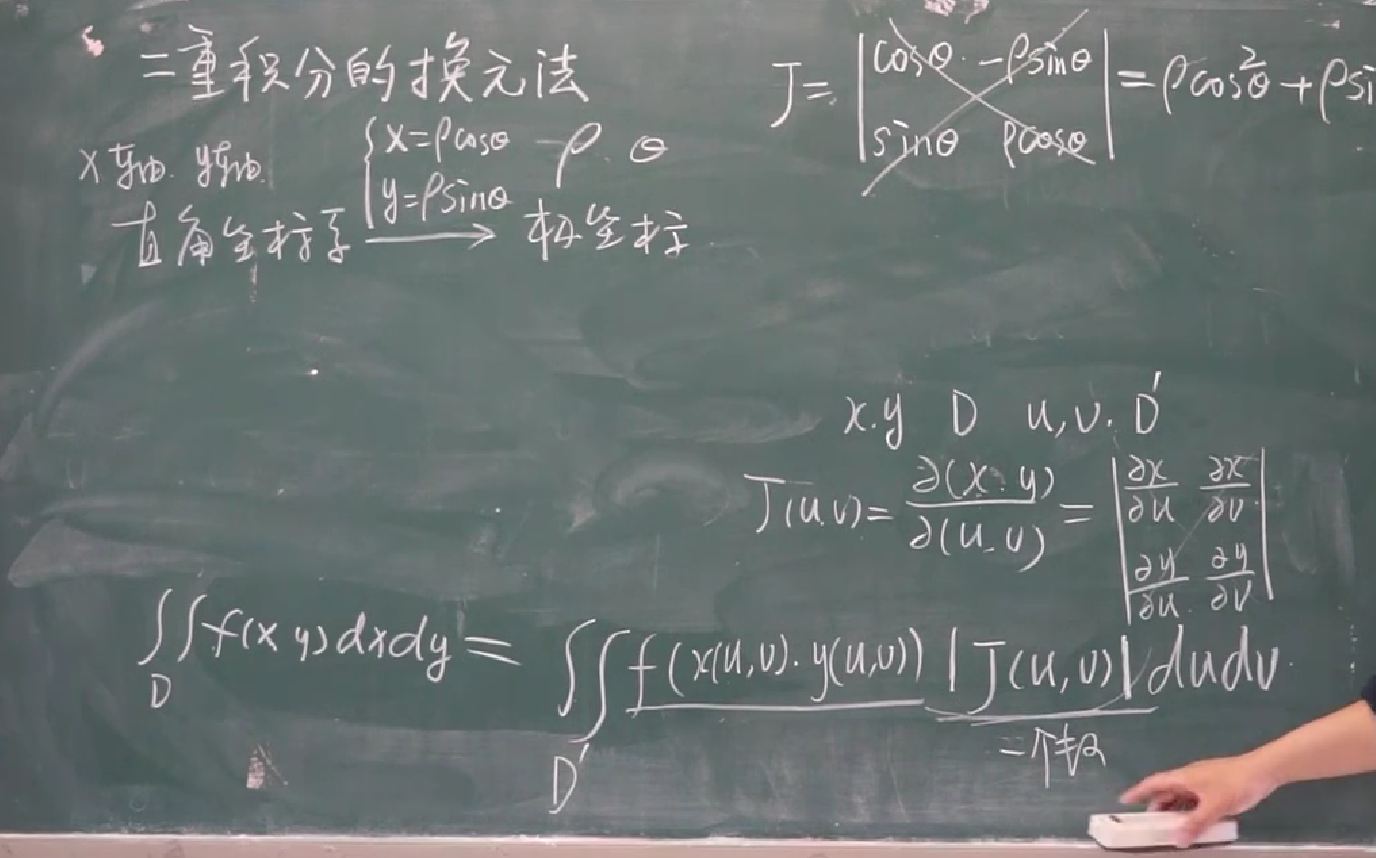 二重积分的换元法
x轴. y轴. { x=ρcosθ  y=ρsinθ  ρ. θ
直角坐标系 → 极坐标
J= | cosθ  -ρsinθ |
| sinθ  ρcosθ | =ρcos²θ+ρsi
x.y  D  u,v. D'
J(u.v)= ∂(x.y)/∂(u.v) = | ∂x/∂u  ∂x/∂v |
| ∂y/∂u  ∂y/∂v |
∬_D f(x y)dxdy= ∬_D' f(x(u,v).y(u,v)) |J(u,v)| dudv.